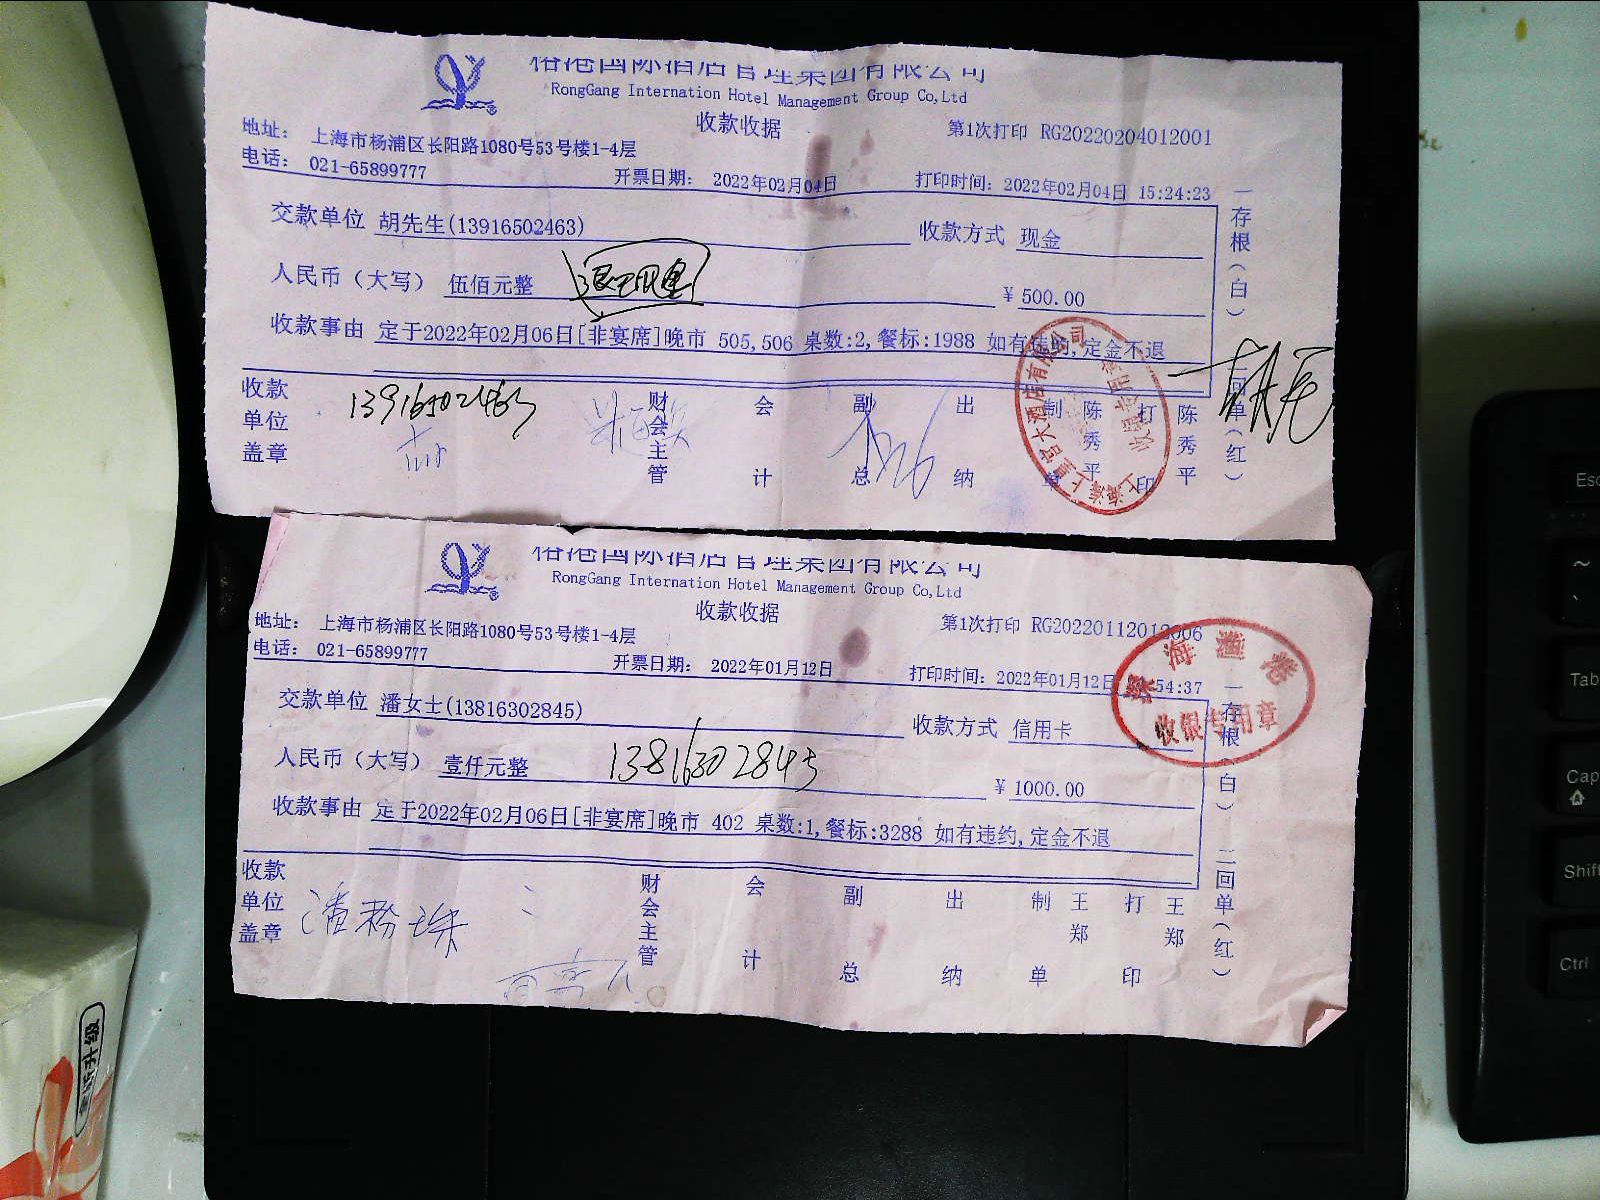 榕港国际酒店管理集团有限公司
RongGang Internation Hotel Management Group Co,Ltd
收款收据
第1次打印 RG20220204012001
地址： 上海市杨浦区长阳路1080号53号楼1-4层
电话： 021-65899777
开票日期： 2022年02月04日
打印时间：2022年02月04日 15:24:23
交款单位 胡先生(13916502463)
收款方式 现金
人民币（大写） 伍佰元整
¥ 500.00
收款事由 定于2022年02月06日[非宴席]晚市 505,506 桌数:2,餐标:1988 如有违约,定金不退
一存根（白） 二回单（红）
收款单位盖章
13916502463
财会主管
会计
副总
出纳
制单
陈秀平
打印
陈秀平
榕港国际酒店管理集团有限公司
RongGang Internation Hotel Management Group Co,Ltd
收款收据
第1次打印 RG20220112012006
地址： 上海市杨浦区长阳路1080号53号楼1-4层
电话： 021-65899777
开票日期： 2022年01月12日
打印时间：2022年01月12日 54:37
收银专用章
交款单位 潘女士(13816302845)
收款方式 信用卡
人民币（大写） 壹仟元整
13816302845
¥ 1000.00
收款事由 定于2022年02月06日[非宴席]晚市 402 桌数:1,餐标:3288 如有违约,定金不退
一存根（白） 二回单（红）
收款单位盖章
潘粉珠
财会主管
会计
副总
出纳
制单
王郑
打印
王郑
Esc
~
Tab
Cap
Shift
Ctrl